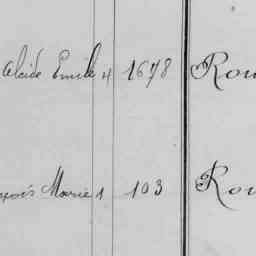 Alcide Emile 4 1678 Rou
çois Marie 1 103 Rou